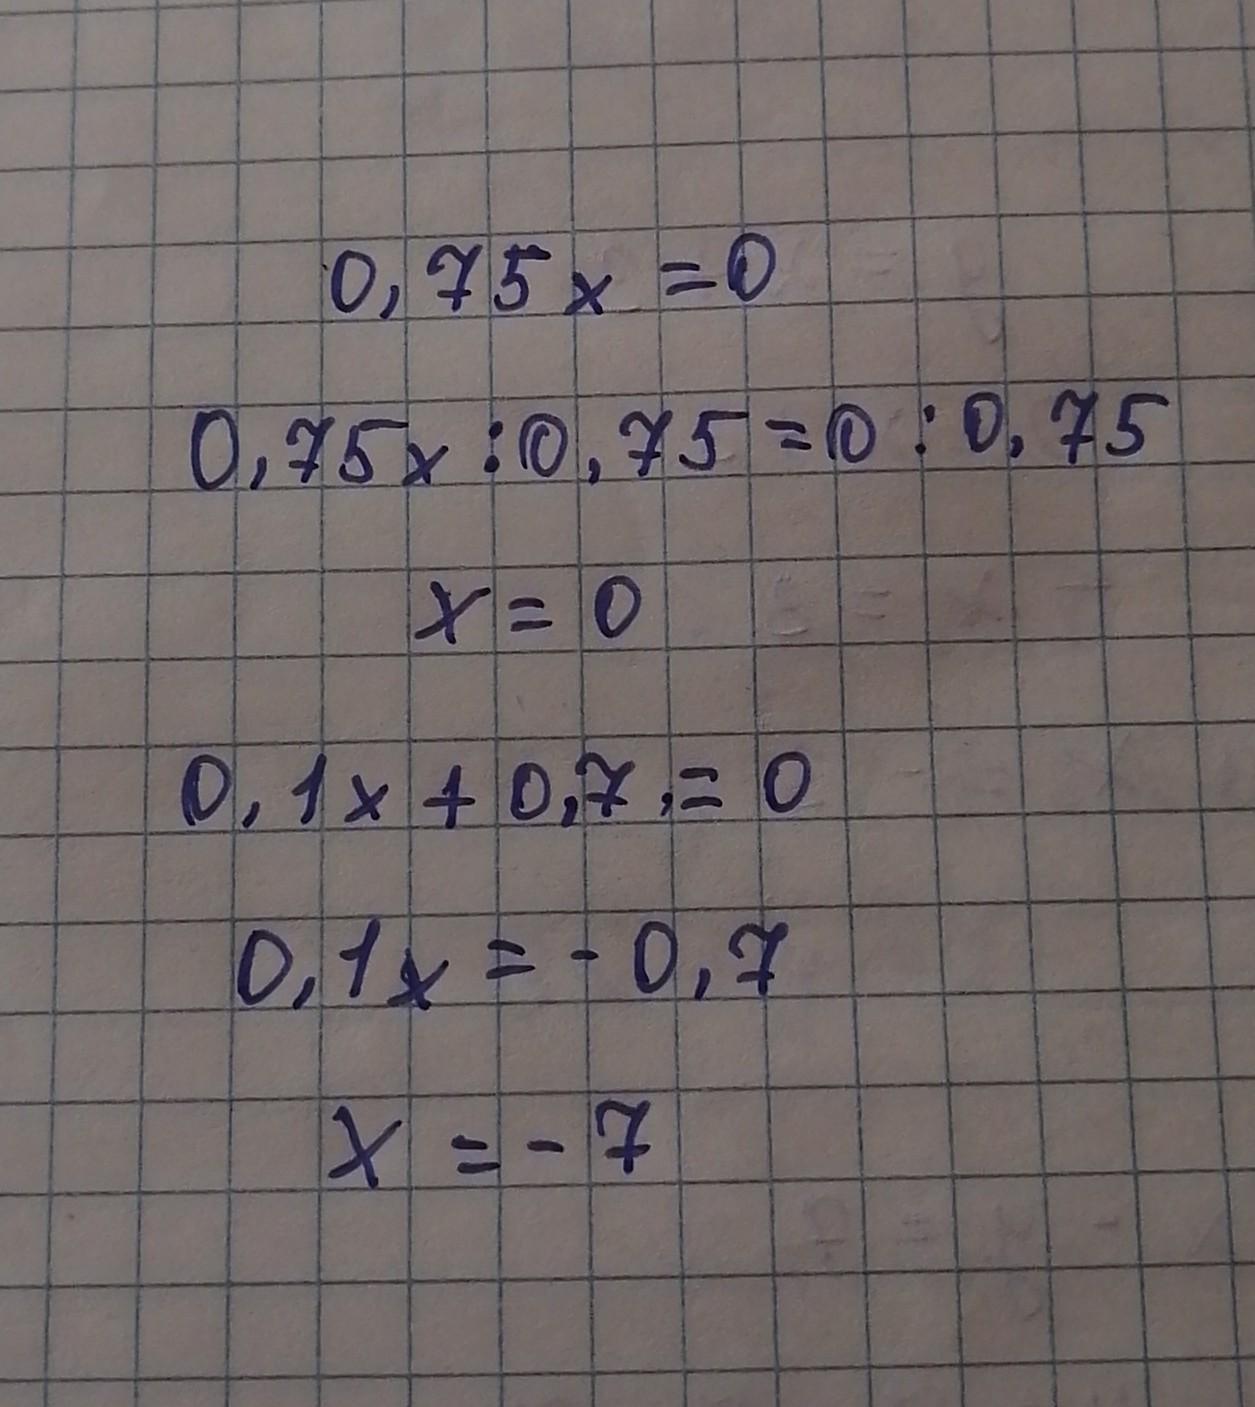 0,75x = 0
0,75x : 0,75 = 0 : 0,75
x = 0
0,1x + 0,7 = 0
0,1x = - 0,7
x = - 7